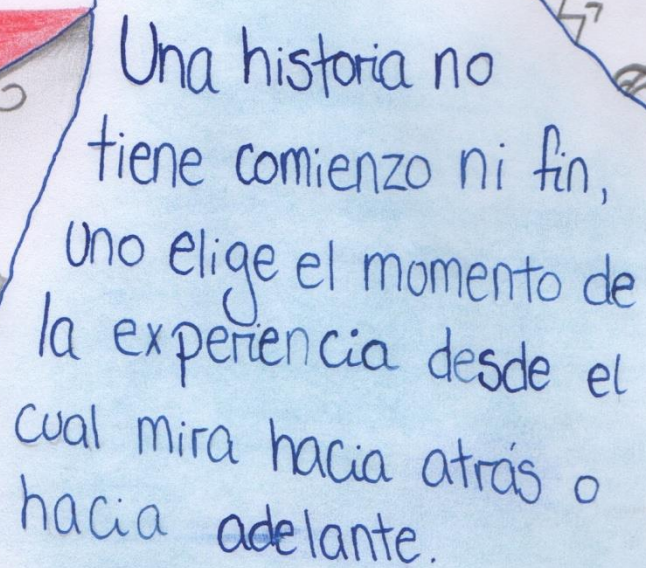 Una historia no
tiene comienzo ni fin,
uno elige el momento de
la experiencia desde el
cual mira hacia atrás o
hacia adelante.